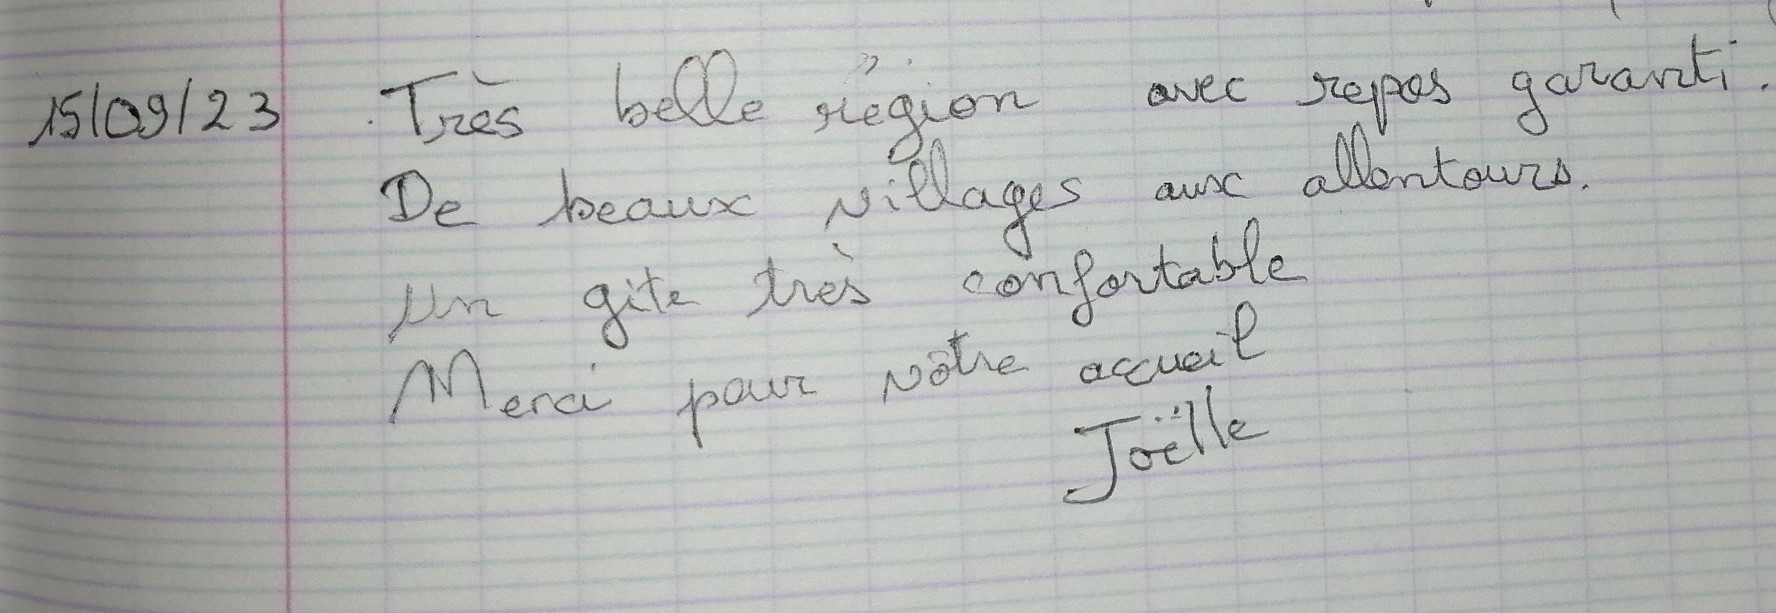 15/09/23 Très belle région avec repos garanti.
De beaux villages aux allentours.
Un gite très confortable
Merci pour vôtre accueil
Joëlle